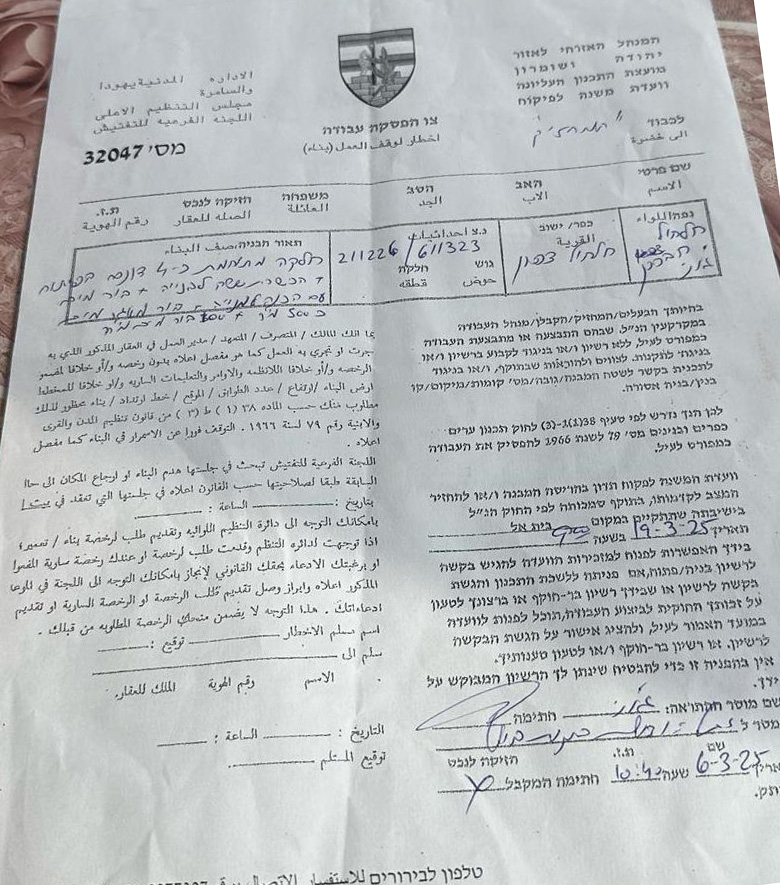 המנהל האזרחי לאזור
יהודה ושומרון
מועצת התכנון העליונה
וועדת משנה לפיקוח
الاداره المدنية يهودا
والسامرة
مجلس التنظيم الاعلى
اللجنه الفرعية للتفتيش
צו הפסקת עבודה
اخطار لوقف العمل (بناء)
מס' 32047
לכבוד "המחזיק"
الى حضرة
שם פרטי האב הסב משפחה חזיקה לנכס ת.ז.
الاسم الاب الجد العائلة الصله للعقار رقم الهوية
נפת/הלוואה
חלחול
כפר/ ישוב
القرية
חלחול צפון
נ.צ احداثيات
211226 / 611323
גוש חלקה
حوض قطعه
תאור הבניה\وصف البناء
חלקה מתוחמת כ-4 דונם
בהיותך הבעלים/המחזיק/הקבלן/מנהל העבודה
במקרקעין הנ"ל, שבהם התבצעה או מתבצעת העבודה
כמפורט לעיל, ללא רשיון ו/או בניגוד לקבוע ברשיון ו/או
בניגוד לתקנות, לצווים ולהוראות שבתוקף, ו/או בניגוד
לתכנית בקשר לשטח המבנה/גובה/מס' קומות/מיקום/קו
בנין/בניה אסורה.
לכן הנך נדרש לפי סעיף 38(1)-(3) לחוק תכנון ערים
כפרים ובנינים מס' 79 לשנת 1966 להפסיק את העבודה
כמפורט לעיל.
וועדת המשנה לפקוח תדון בהריסת המבנה ו/או להחזיר
המצב לקדמותו, בתוקף סמכותה לפי החוק הנ"ל
בישיבתה שתתקיים במקום בית אל
תאריך 19-3-25 בשעה
בידך האפשרות לפנות למזכירות הוועדה להגיש בקשה
לרשיון בניה/פתוח, אם פניתה ללשכת התכנון והגשת
בקשה לרשיון או שבידך רשיון בר-תוקף או ברצונך לטעון
על זכותך החוקית לביצוע העבודה, תוכל לפנות לוועדה
במועד האמור לעיל, ולהציג אישור על הגשת הבקשה
לרשיון, או רשיון בר-תוקף ו/או לטעון טענותיך.
אין בהפניה זו כדי להבטיח שינתן לך הרשיון המבוקש על
ידך.
שם מוסר ההתראה: חתימה
נמסר ל
שם ת.ז. חזיקה לנכס
תאריך 6-3-25 שעה 10:40 חתימת המקבל
بما انك المالك / المتصرف / المتعهد / مدير العمل في العقار المذكور الذي به
جرت او تجري به العمل كما هو مفصل اعلاه بدون رخصه و/أو خلافا لمضمو
الرخصه و/أو خلافا للانظمه والاوامر والتعليمات الساريه و/أو خلافا للمخطط/
ارض البناء /ارتفاع / عدد الطوابق / الموقع / خط ارتداد / بناء محظور لذلك
مطلوب منك حسب الماده ٣٨ (١) ط (٣) من قانون تنظيم المدن والقرى
والابنية رقم ٧٩ لسنة ١٩٦٦ . التوقف فورا عن الاستمرار في البناء كما مفصل
اعلاه .
اللجنة الفرعية للتفتيش تبحث في جلستها هدم البناء او ارجاع المكان الى حا
السابقة طبقا لصلاحيتها حسب القانون اعلاه في جلستها التي تعقد في بيت
بتاريخ : الساعة :
بامكانك التوجه الى دائرة التنظيم اللوائيه وتقديم طلب لرخصة بناء / تعمير،
اذا توجهت لدائرة التنظم وقدمت طلب لرخصة او عندك رخصة سارية المفعو
او برغبتك الادعاء بحقك القانوني لإنجاز بامكانك التوجه الى اللجنة في الموعا
المذكور اعلاه وابراز وصل تقديم طلب الرخصة او الرخصة السارية او تقديم
ادعاءاتك . هذا التوجه لا يضمن منحك الرخصة المطلوبه من قبلك .
اسم مسلم الاخطار توقيع :
سلم الى
الاسم رقم الهوية الملك للعقار.
التاريخ : الساعة :
توقيع المستلم
טלפון לבירורים للاستفسار الاتصال